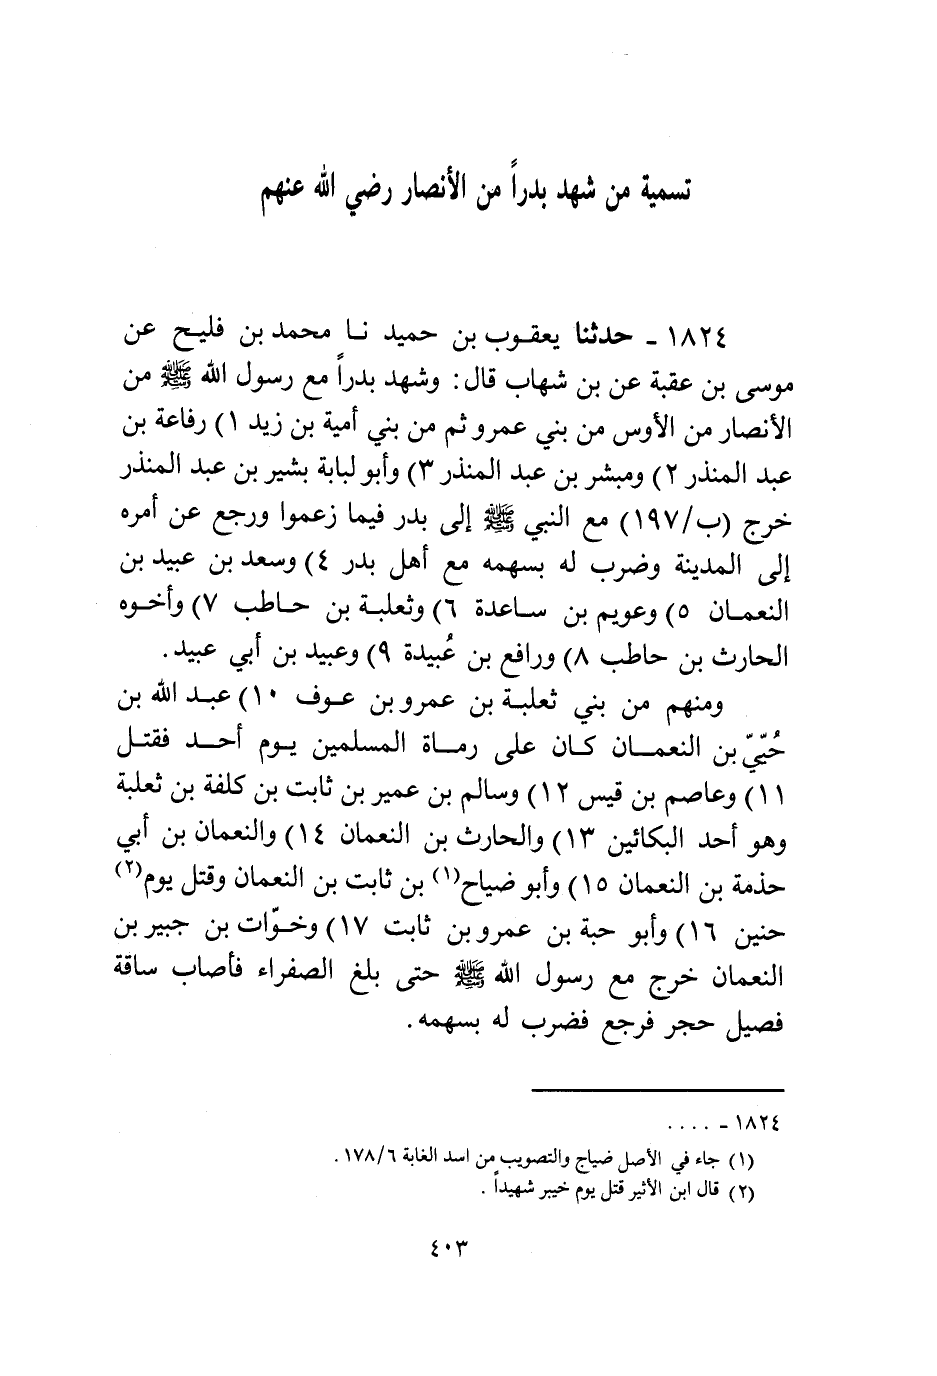 تسمية من شهد بدراً من الأنصار رضي الله عنهم
١٨٢٤ ـ حدثنا يعقوب بن حميد نا محمد بن فليح عن
موسى بن عقبة عن بن شهاب قال : وشهد بدراً مع رسول الله ﷺ من
الأنصار من الأوس من بني عمرو ثم من بني أمية بن زيد ١) رفاعة بن
عبد المنذر ٢) ومبشر بن عبد المنذر ٣) وأبو لبابة بشير بن عبد المنذر
خرج (ب/١٩٧) مع النبي ﷺ إلى بدر فيما زعموا ورجع عن أمره
إلى المدينة وضرب له بسهمه مع أهل بدر ٤) وسعد بن عبيد بن
النعمان ٥) وعويم بن ساعدة ٦) وثعلبة بن حاطب ٧) وأخوه
الحارث بن حاطب ٨) ورافع بن عُبيدة ٩) وعبيد بن أبي عبيد .
ومنهم من بني ثعلبة بن عمرو بن عوف ١٠) عبد الله بن
حُيّيّ بن النعمان كان على رماة المسلمين يوم أحد فقتل
١١) وعاصم بن قيس ١٢) وسالم بن عمير بن ثابت بن كلفة بن ثعلبة
وهو أحد البكائين ١٣) والحارث بن النعمان ١٤) والنعمان بن أبي
حذمة بن النعمان ١٥) وأبو ضياح(١) بن ثابت بن النعمان وقتل يوم(٢)
حنين ١٦) وأبو حبة بن عمرو بن ثابت ١٧) وخوّات بن جبير بن
النعمان خرج مع رسول الله ﷺ حتى بلغ الصفراء فأصاب ساقة
فصيل حجر فرجع فضرب له بسهمه .
١٨٢٤ ـ . . . .
(١) جاء في الأصل ضياج والتصويب من اسد الغابة ١٧٨/٦ .
(٢) قال ابن الأثير قتل يوم خيبر شهيداً .
٤٠٣